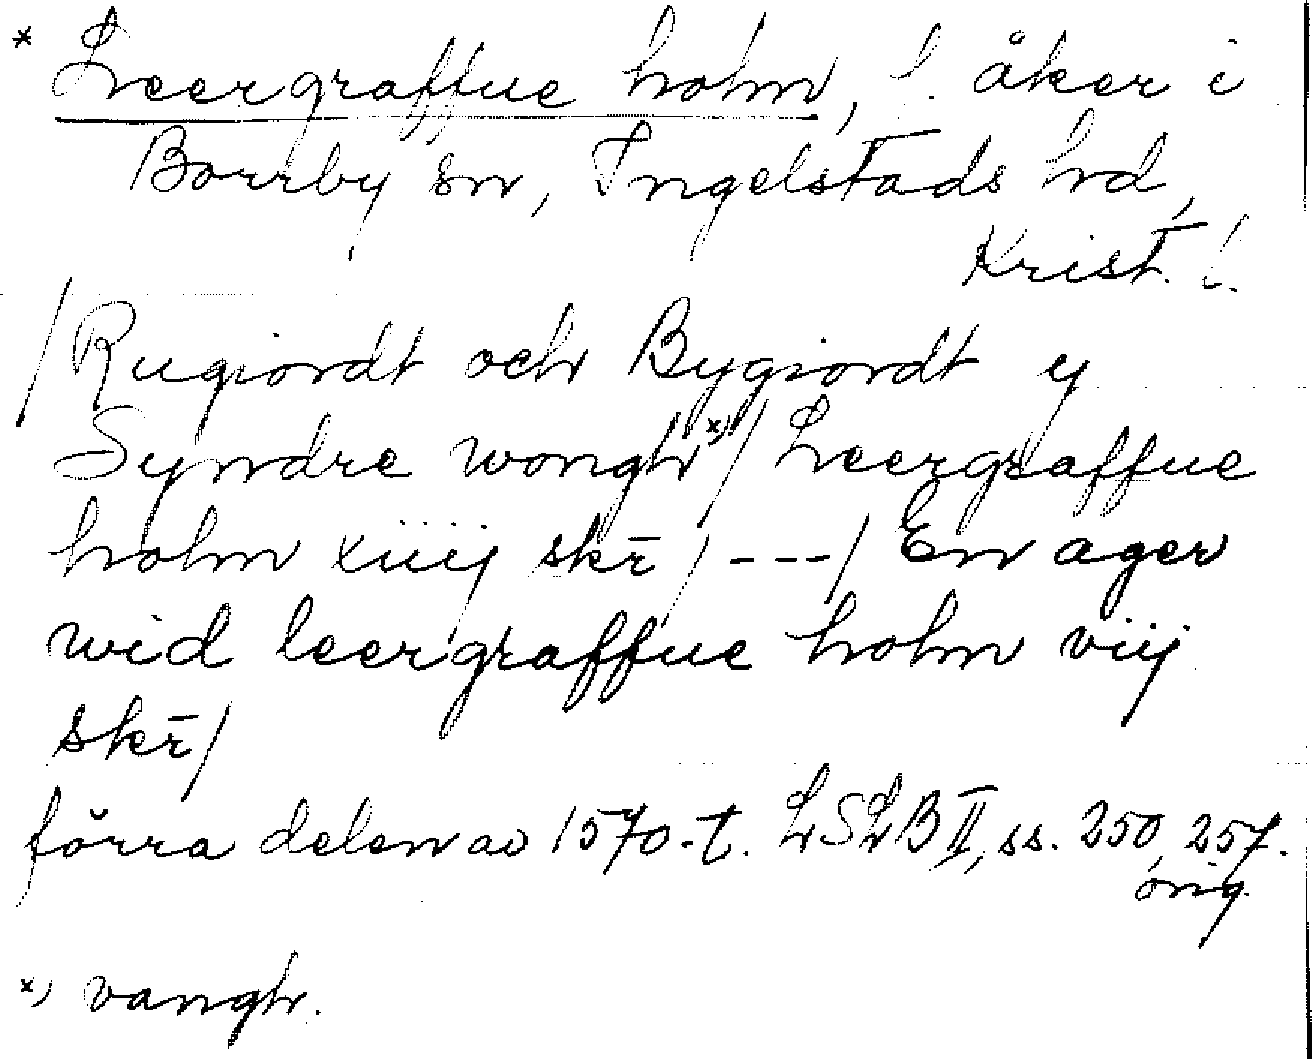 * Leergraffue holm, f. åker i
Borrby sn, Ingelstads hd,
Krist. l.
/Rugiordt och Bygiordt y
Syndre wongh x)/ Leergraffue
holm xiiij skr̄ /---/ En ager
wid leergraffue holm viij
skr̄/
förra delen av 1570-t. LSLB II, ss. 250, 257.
orig.
x) vangh.